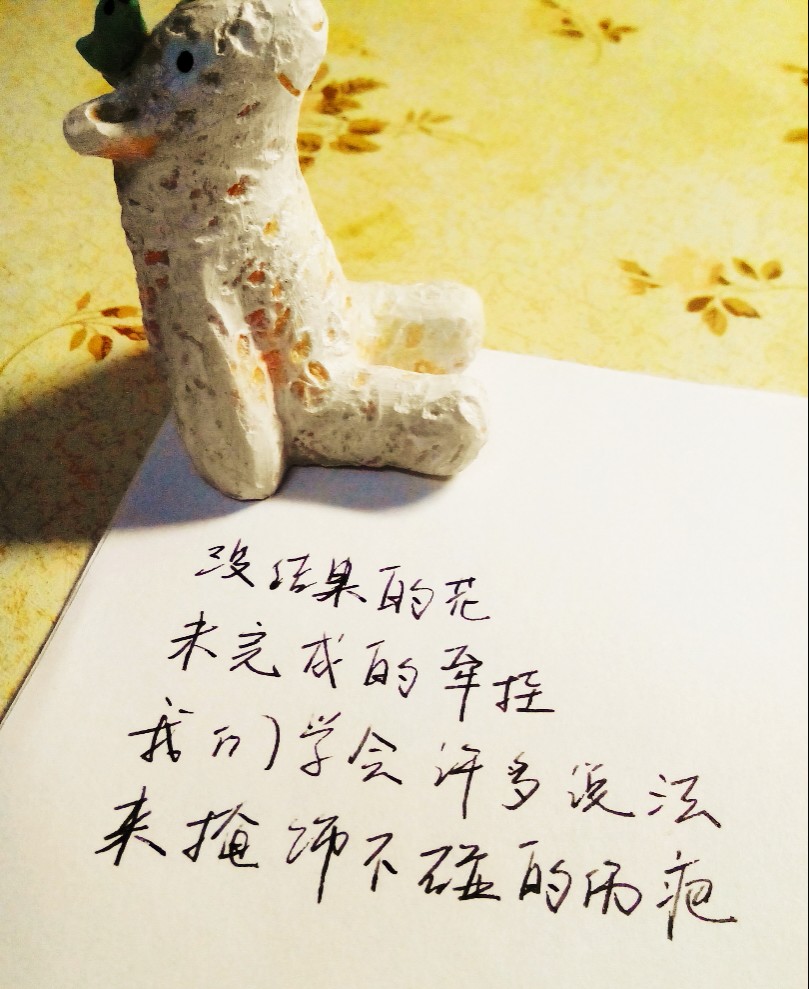 没结果的花
未完成的牵挂
我们学会许多说法
来掩饰不碰的伤疤